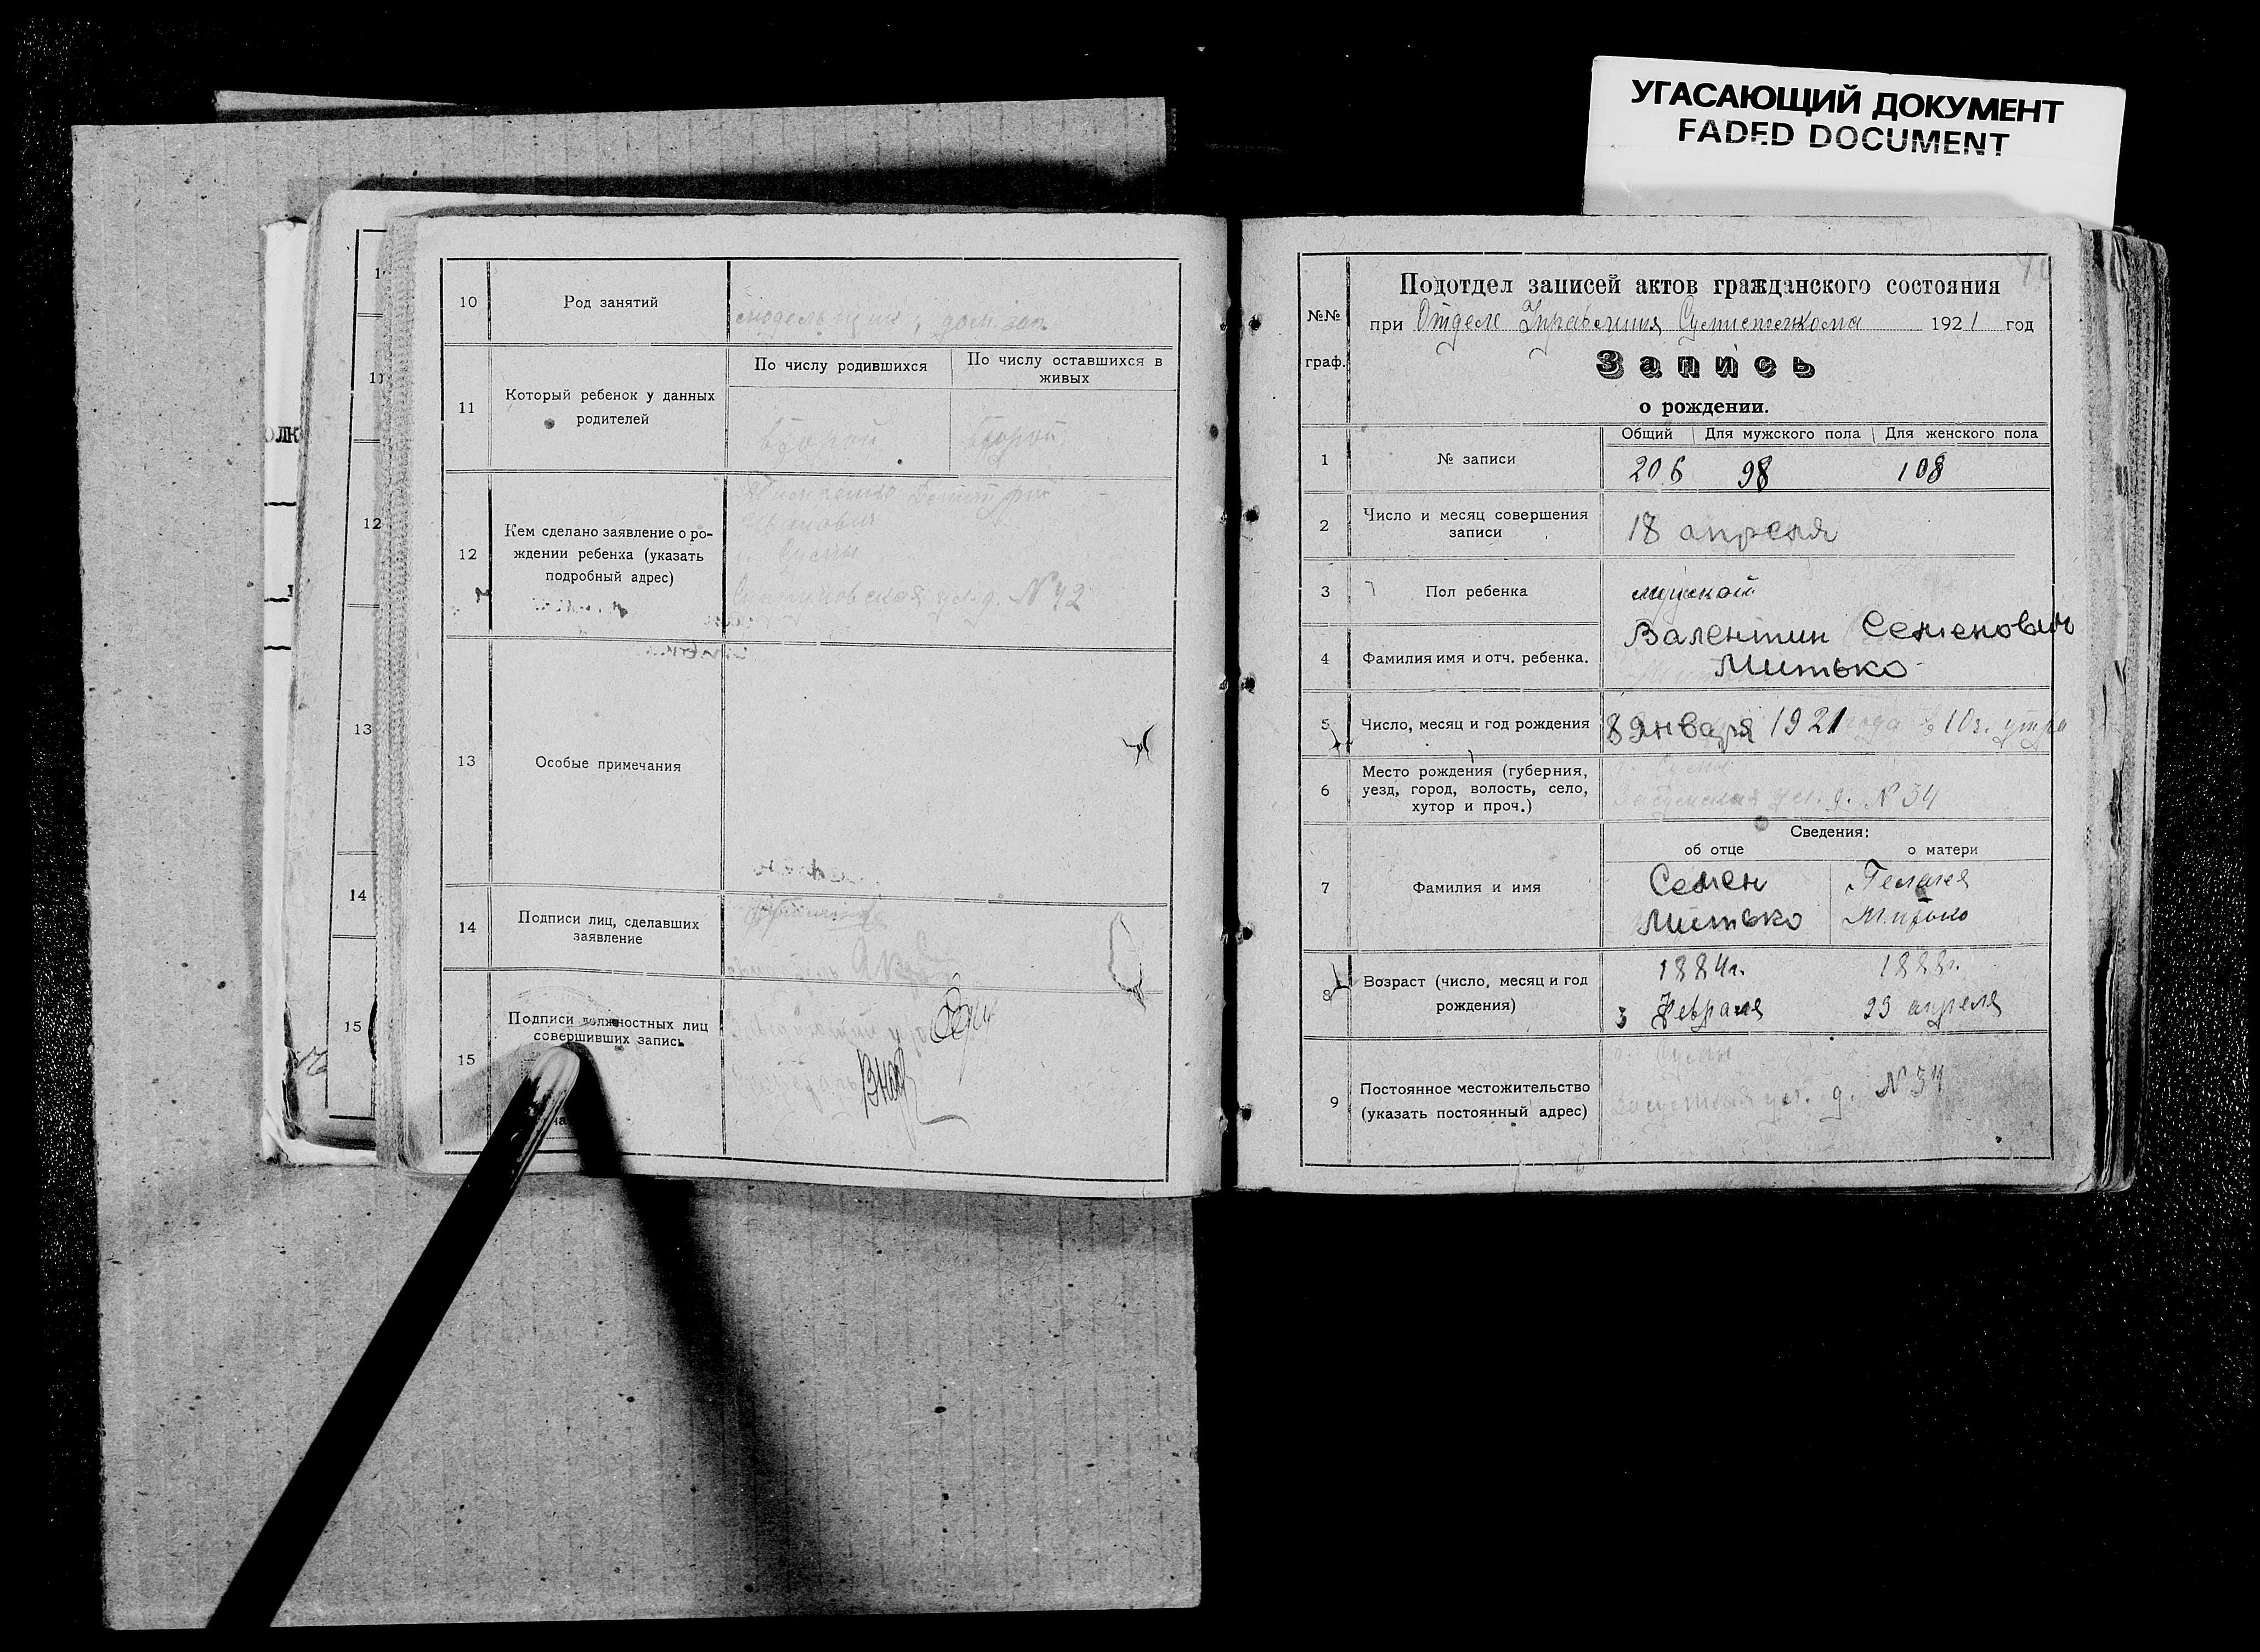 УГАСАЮЩИЙ ДОКУМЕНТ
FADED DOCUMENT
10
Род занятий
модельщик, дом. зан.
11
Который ребенок у данных
родителей
По числу родившихся
По числу оставшихся в
живых
второй
второй
12
Кем сделано заявление о ро-
ждении ребенка (указать
подробный адрес)
г. Сумы
ул. д. N 42
13
Особые примечания
14
Подписи лиц, сделавших
заявление
15
Подписи должностных лиц
совершивших запись
12
13
14
15
№№
граф.
Подотдел записей актов гражданского состояния
при Отделе Управления 1921 год
Запись
о рождении.
1
№ записи
Общий
Для мужского пола
Для женского пола
206
98
108
2
Число и месяц совершения
записи
18 апреля
3
Пол ребенка
мужской
4
Фамилия имя и отч. ребенка.
Валентин Семенович
Митько
5
Число, месяц и год рождения
8 Января 1921 года в 10 ч. утра
6
Место рождения (губерния,
уезд, город, волость, село,
хутор и проч.)
г. Сумы
ул. д. N 34
Сведения:
об отце
о матери
7
Фамилия и имя
Семен
Митько
Митько
8
Возраст (число, месяц и год
рождения)
1884г.
3 Февраля
1888г.
23 апреля
9
Постоянное местожительство
(указать постоянный адрес)
г. Сумы
ул. д. N 34